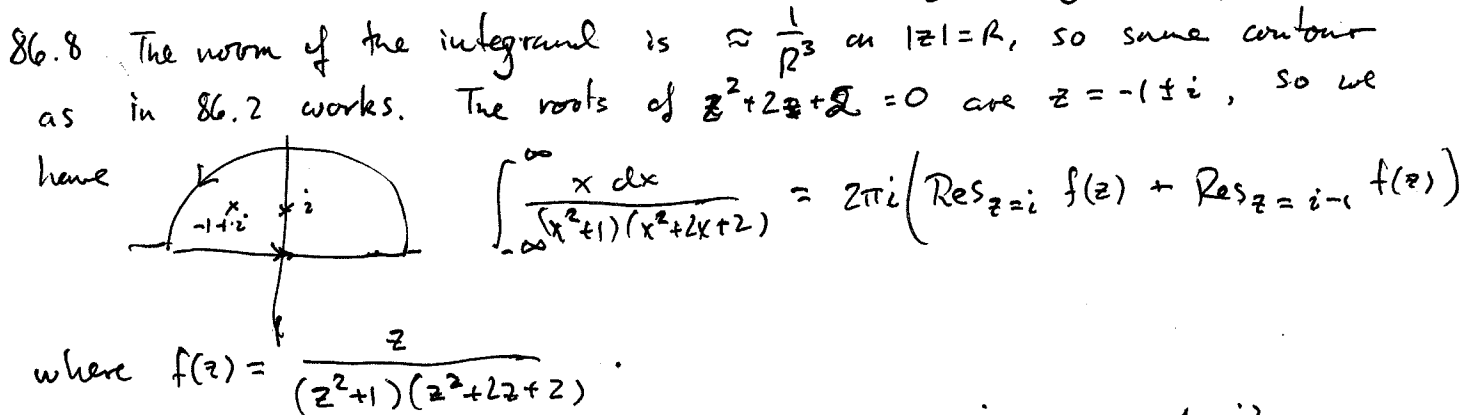 86.8 The norm of the integrand is ≈ 1/R³ on |z|=R, so same contour
as in 86.2 works. The roots of z²+2z+2 = 0 are z = -1 ± i, so we
have
-1+i
i
∫_{-∞}^{∞} x dx / (x²+1)(x²+2x+2) = 2πi(Res_{z=i} f(z) + Res_{z=i-1} f(z))
where f(z) = z / (z²+1)(z²+2z+2) .